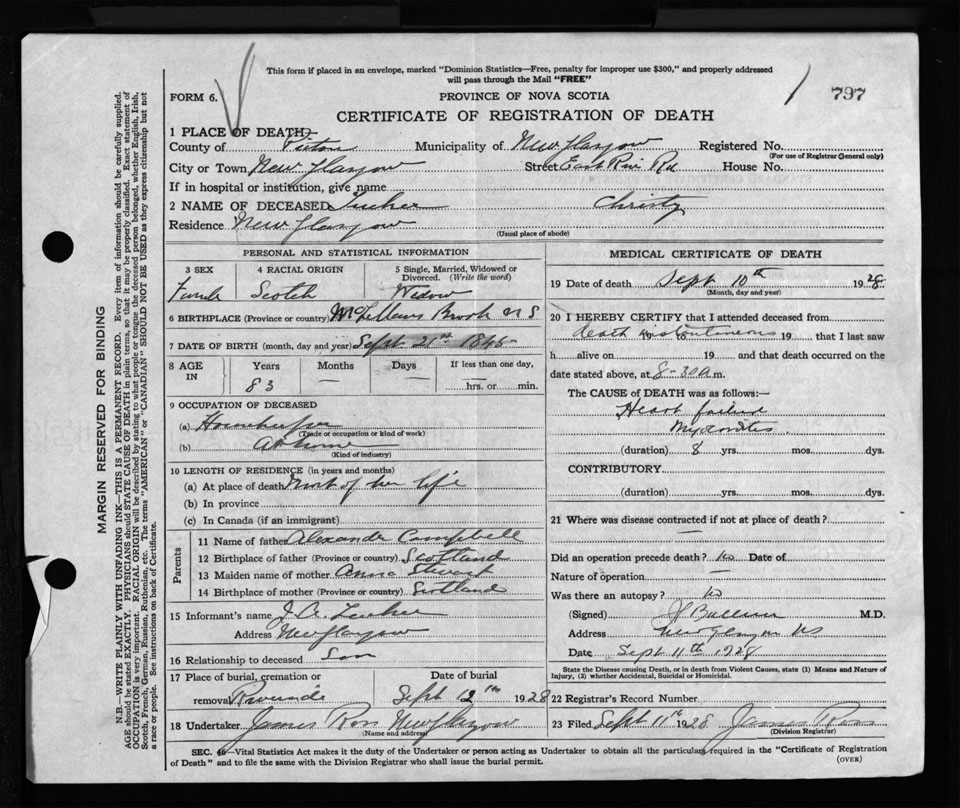 This form if placed in an envelope, marked "Dominion Statistics—Free, penalty for improper use $300," and properly addressed
will pass through the Mail "FREE"
FORM 6.
PROVINCE OF NOVA SCOTIA
797
CERTIFICATE OF REGISTRATION OF DEATH
1 PLACE OF DEATH
County of Pictou Municipality of New Glasgow Registered No.
(For use of Registrar General only)
City or Town New Glasgow Street East River Rd House No.
If in hospital or institution, give name
2 NAME OF DECEASED Christy
Residence New Glasgow
(Usual place of abode)
PERSONAL AND STATISTICAL INFORMATION
3 SEX 4 RACIAL ORIGIN 5 Single, Married, Widowed or Divorced. (Write the word)
Female Scotch Widow
6 BIRTHPLACE (Province or country) McLellans Brook N S
7 DATE OF BIRTH (month, day and year) Sept 21st 1845
8 AGE IN Years Months Days If less than one day,
83 — — hrs. or min.
9 OCCUPATION OF DECEASED
(a) Housekeeper
(Trade or occupation or kind of work)
(b) At home
(Kind of industry)
10 LENGTH OF RESIDENCE (in years and months)
(a) At place of death Most of her life
(b) In province
(c) In Canada (if an immigrant)
Parents
11 Name of father Alexander Campbell
12 Birthplace of father (Province or country) Scotland
13 Maiden name of mother Anna Stewart
14 Birthplace of mother (Province or country) Scotland
15 Informant's name J.
Address New Glasgow
16 Relationship to deceased Son
17 Place of burial, cremation or removal Riverside Date of burial Sept 12th 1928
18 Undertaker James Ross New Glasgow
(Name and address)
MEDICAL CERTIFICATE OF DEATH
19 Date of death Sept 10th 1928
(Month, day and year)
20 I HEREBY CERTIFY that I attended deceased from
death was 19 that I last saw
h alive on 19 and that death occurred on the
date stated above, at 8-30 a.m.
The CAUSE OF DEATH was as follows:—
Heart failure
Myocarditis
(duration) 8 yrs. mos. dys.
CONTRIBUTORY
(duration) yrs. mos. dys.
21 Where was disease contracted if not at place of death?
—
Did an operation precede death? No Date of
Nature of operation —
Was there an autopsy? No
(Signed) M.D.
Address New Glasgow NS
Date Sept 11th 1928
State the Disease causing Death, or in death from Violent Causes, state (1) Means and Nature of
Injury, (2) whether Accidental, Suicidal or Homicidal.
22 Registrar's Record Number
23 Filed Sept 11th 1928 James Ross
(Division Registrar)
SEC. —Vital Statistics Act makes it the duty of the Undertaker or person acting as Undertaker to obtain all the particulars required in the "Certificate of Registration
of Death" and to file the same with the Division Registrar who shall issue the burial permit.
(OVER)
MARGIN RESERVED FOR BINDING
N.B.—WRITE PLAINLY WITH UNFADING INK—THIS IS A PERMANENT RECORD. Every item of information should be carefully supplied.
AGE should be stated EXACTLY. PHYSICIANS should STATE CAUSE OF DEATH in plain terms, so that it may be properly classified. Exact statement of
OCCUPATION is very important. RACIAL ORIGIN will be described by stating to what people or tongue the deceased person belonged, whether English, Irish,
Scotch, French, German, Russian, Ruthenian, etc. The terms "AMERICAN" or "CANADIAN" SHOULD NOT BE USED as they express citizenship but not
a race or people. See instructions on back of Certificate.